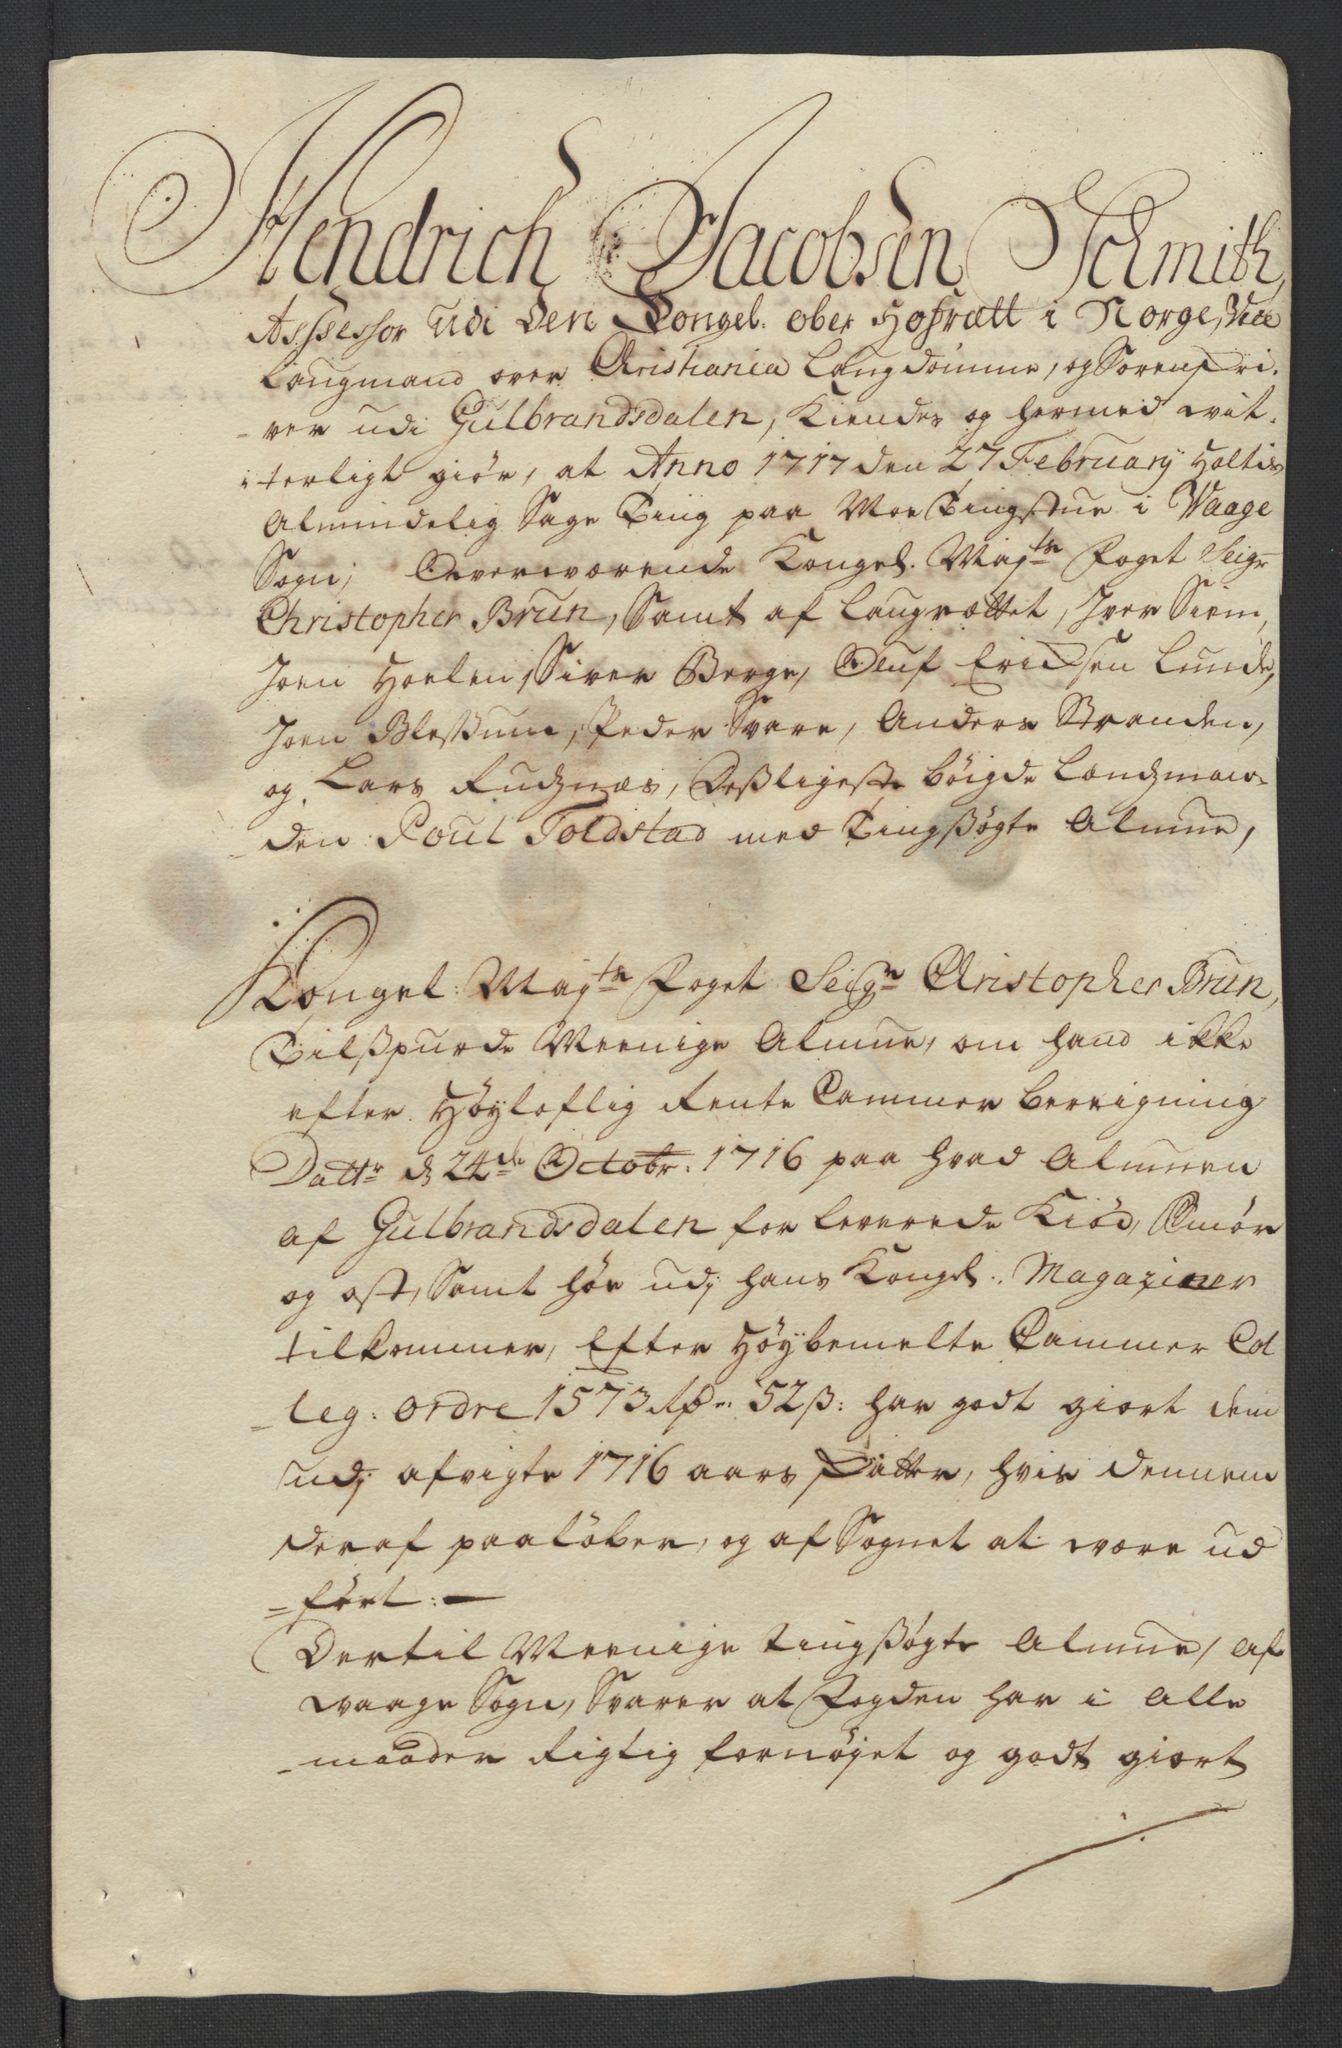 Hendrich Jacobsen Schmith,
Assessor udi den Kongel: ober Hofrætt i Norge, Vice
Laugmand over Christiania Laugdømme, og Sorenskri-
-ver udi Gulbrandsdalen, Kiendes og hermed wit-
terligt giør, at Anno 1717 den 27 February Holtis
Almindelig Sage Ting paa Moe Tingstue i Vaage
Sogn, Overværende Kongel. Maytz Foget Seigr
Christopher Brun, Samt af Laugrættet, Iver Siem,
Joen Hoelen, Siver Berge, Oluf Erichsen Lunde,
Joen Blessum, Peder Svare, Anders Stranden,
og Lars Rudznæs, Desligeste bøigde Landzman-
-den Poul Toldstad med Tingsøgte Almue,
Kongel: Maytz Foget Seigr Christopher Brun,
Tilspurde Meenige Almue, om hand ikke
efter Høyloflig Rente Cammer
Datt: d 24de Octobr: 1716 paa hvad Almuen
af Gulbrandsdalen for leverede Kiød, Smør
og ost, Samt høe udj hans Kongl: Magaziner
tilkommer, Efter Høybemelte Cammer Col
-leg: ordre 1573 Rdr 52 ß: har godt giort dem
udj afvigte 1716 aars skatter, hvis dennem
deraf paaløber, og af Sognet at være ud
-ført: —
Dertil Meenige tingsøgte Almue, af
waage Sogn, Svarer at Fogden har i alle
-maader Rigtig fornøjet og godt giort